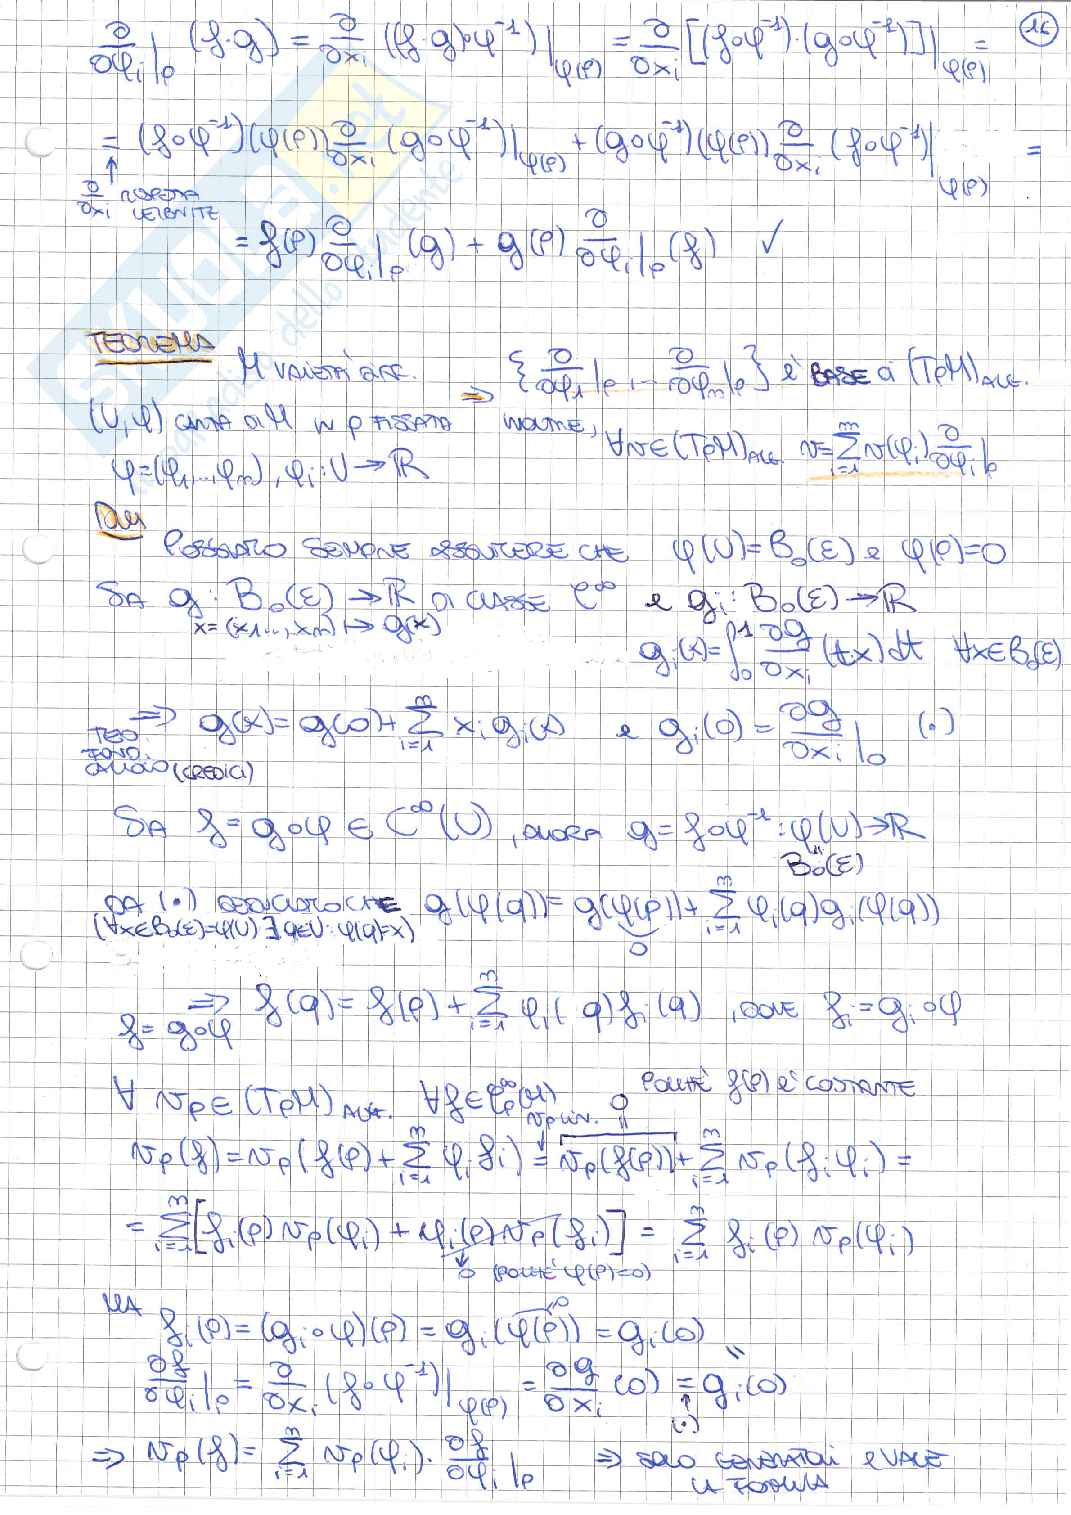 16
∂/∂φ_i|_p (f·g) = ∂/∂x_i ((f·g)∘φ^-1)|_φ(p) = ∂/∂x_i [(f∘φ^-1)·(g∘φ^-1)]|_φ(p) =
= (f∘φ^-1)(φ(p)) ∂/∂x_i (g∘φ^-1)|_φ(p) + (g∘φ^-1)(φ(p)) ∂/∂x_i (f∘φ^-1)|_φ(p) =
↑ ∂/∂x_i RISPETTA
LEIBNITZ
= f(p) ∂/∂φ_i|_p (g) + g(p) ∂/∂φ_i|_p (f) ✓
TEOREMA
M VARIETÀ DIFF. {∂/∂φ_1|_p,... ∂/∂φ_m|_p} è BASE di (TpM)_ALG.
(U,φ) CARTA DI M IN p FISSATA ⇒ INOLTRE, ∀v∈(TpM)_ALG. v = Σ_{i=1}^m v(φ_i) ∂/∂φ_i|_p
φ=(φ_1,..,φ_m), φ_i: U→ℝ
DIM
POSSIAMO SEMPRE ASSUMERE CHE φ(U)=B_0(ε) e φ(p)=0
SIA g: B_0(ε)→ℝ DI CLASSE C^∞ e g_i: B_0(ε)→ℝ
x=(x_1..., x_m) ↦ g(x)
g_i(x)=∫_0^1 ∂g/∂x_i (t·x)dt ∀x∈B_0(ε)
⇒ g(x)= g(0)+Σ_{i=1}^m x_i g_i(x) e g_i(0) = ∂g/∂x_i|_0 (·)
TEO.
FOND.
CALCOLO (CREDICI)
SIA f= g∘φ ∈ C^∞(U), ALLORA g= f∘φ^-1: φ(U)→ℝ
"
B_0(ε)
DA (·) DEDUCIAMO CHE g(φ(q))= g(φ(p))+ Σ_{i=1}^m φ_i(q)g_i(φ(q))
(∀x∈B_0(ε)=φ(U) ∃ q∈U: φ(q)=x)
0
⇒ f(q)= f(p)+ Σ_{i=1}^m φ_i(q)f_i(q), DOVE f_i=g_i∘φ
f= g∘φ
∀ v_p∈(TpM)_ALG. ∀f∈C_p^∞(M) 0 POICHÉ f(p) è COSTANTE
v_p LIN.
v_p(f)= v_p(f(p)+ Σ_{i=1}^m φ_i f_i) = v_p(f(p))+ Σ_{i=1}^m v_p(f_i φ_i) =
= Σ_{i=1}^m [f_i(p) v_p(φ_i) + φ_i(p) v_p(f_i)] = Σ_{i=1}^m f_i(p) v_p(φ_i)
0 (POICHÉ φ(p)=0)
MA
0
f_i(p)=(g_i∘φ)(p) = g_i(φ(p)) = g_i(0)
"
∂f/∂φ_i|_p = ∂/∂x_i (f∘φ^-1)|_φ(p) = ∂g/∂x_i (0) = g_i(0)
↑
(·)
⇒ v_p(f)= Σ_{i=1}^m v_p(φ_i)· ∂f/∂φ_i|_p ⇒ SONO GENERATORI e VALE
LA FORMULA